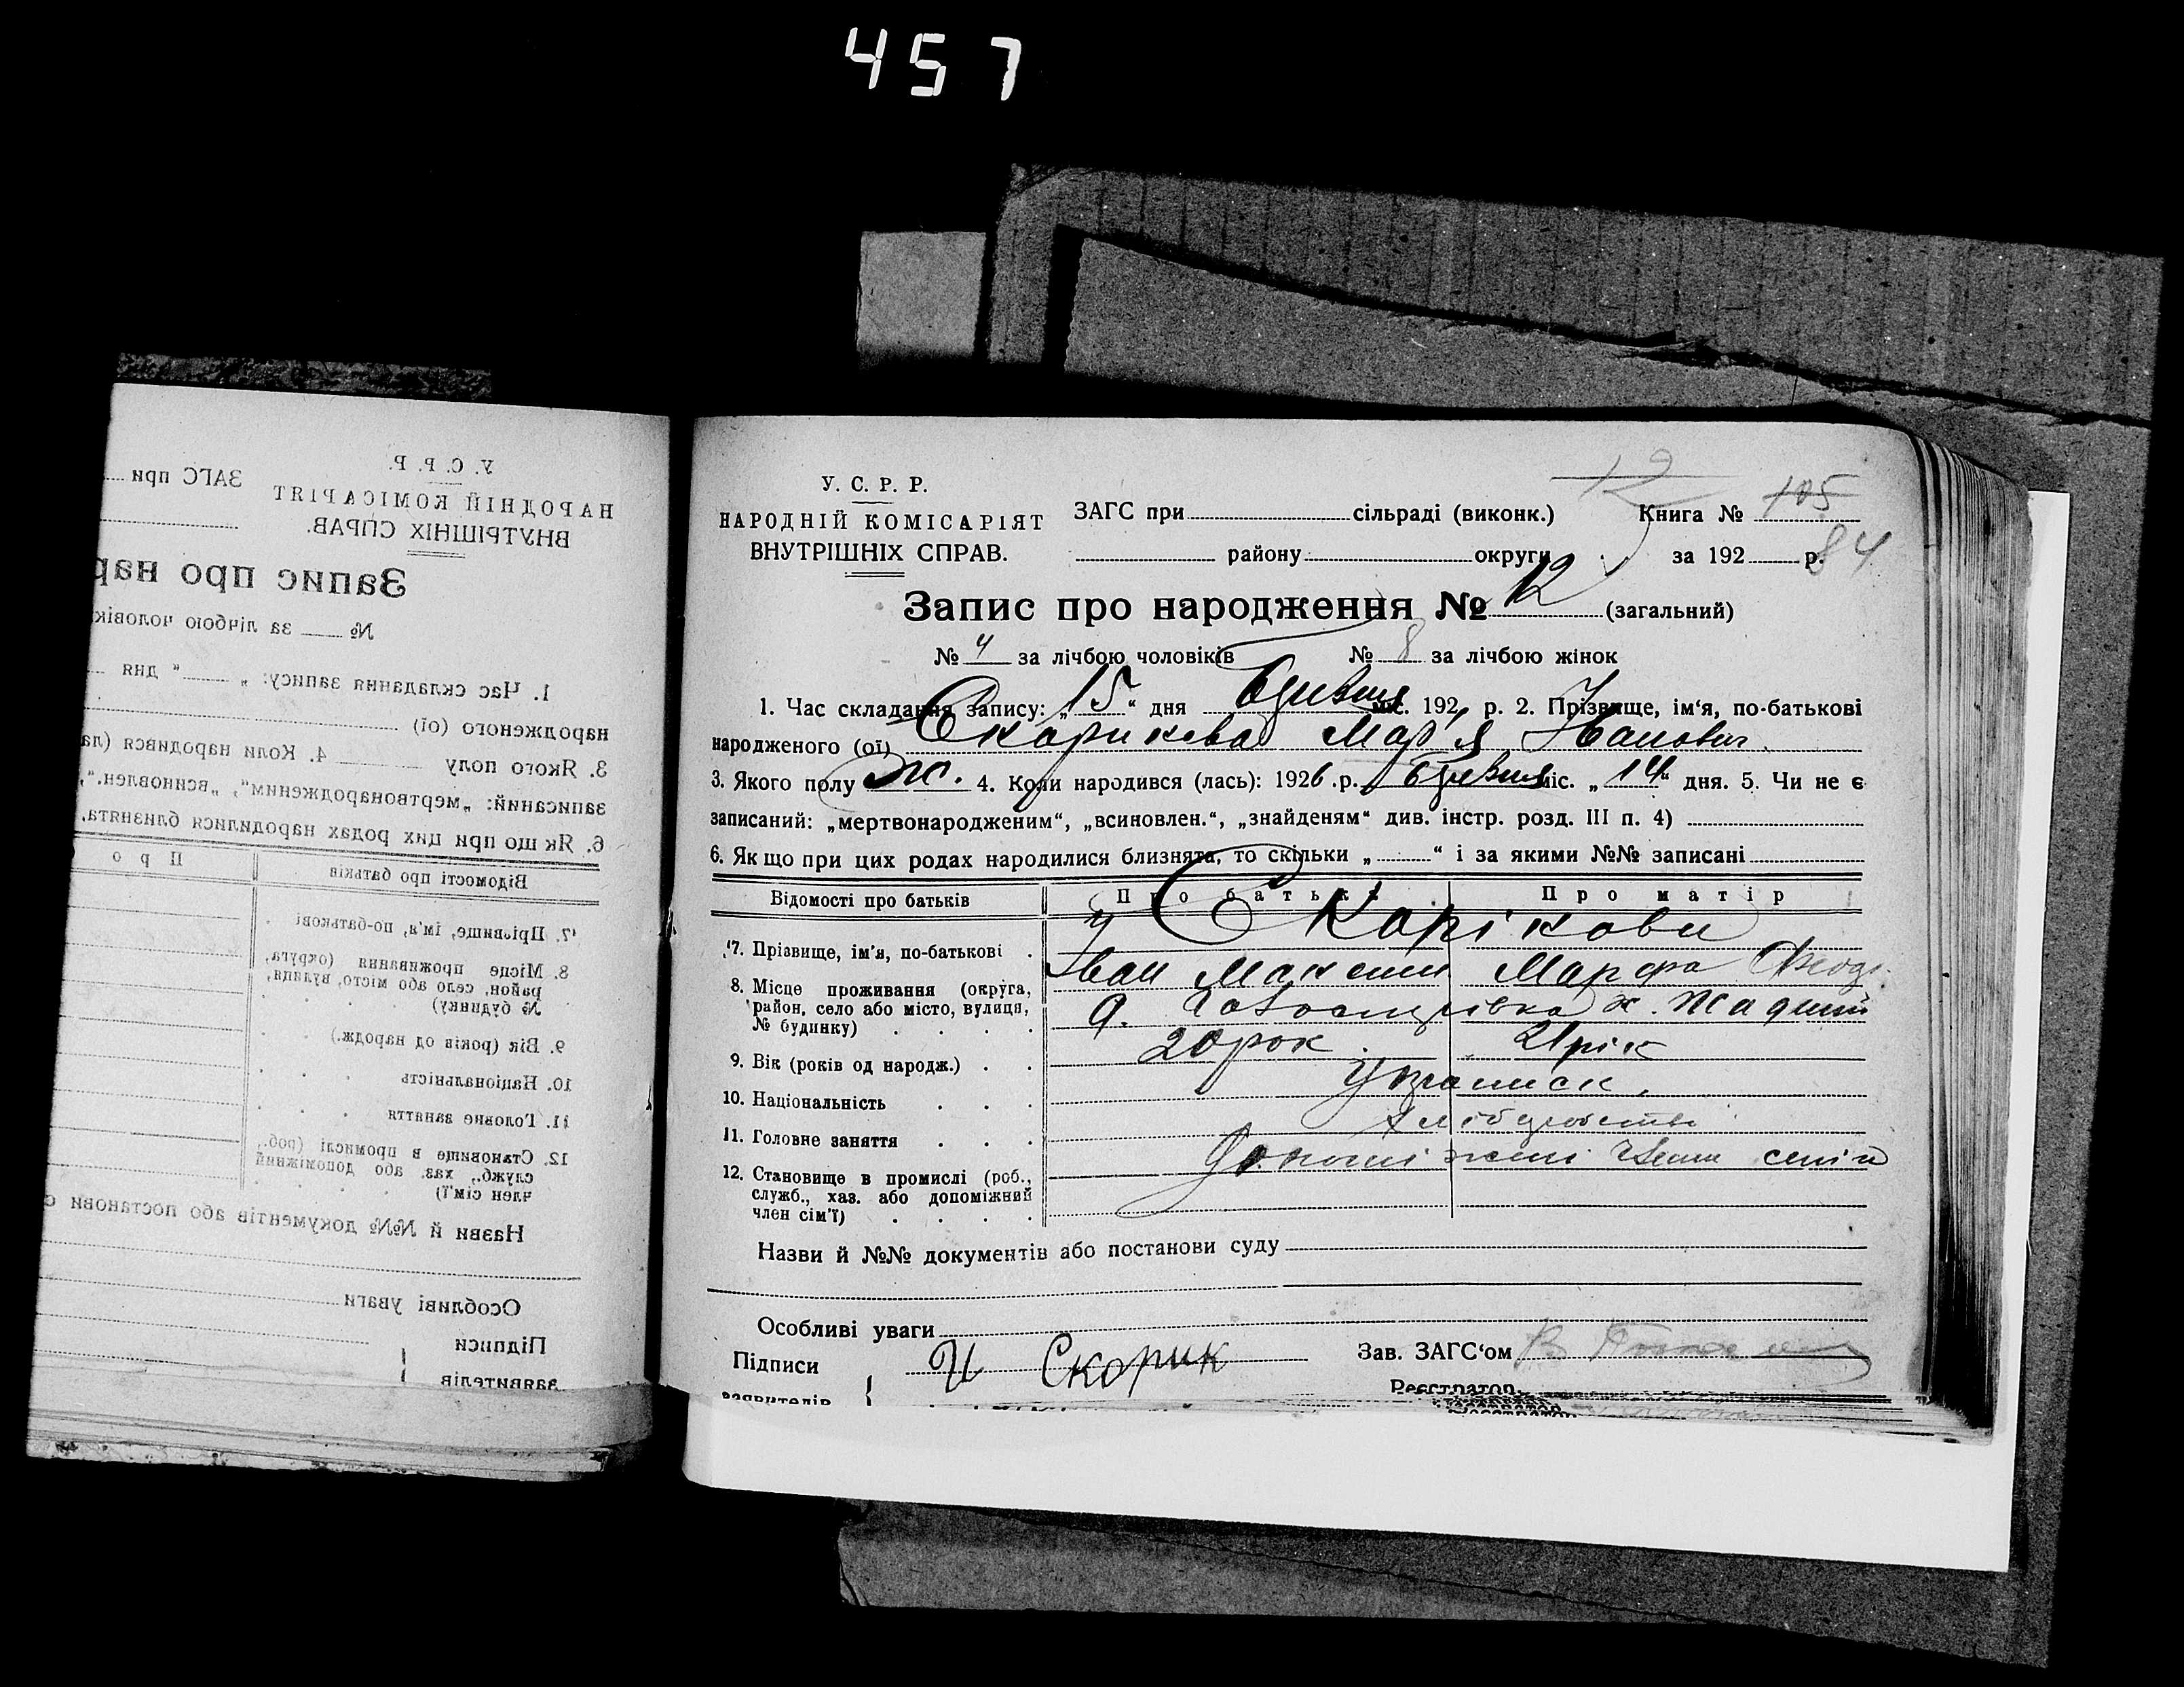 457
У. С. Р. Р.
НАРОДНІЙ КОМІСАРІЯТ
ВНУТРІШНІХ СПРАВ.
ЗАГС при
Запис про нар
№ за лічбою чоловік
1. Час складання запису: „ “ дня
народженого (ої)
3. Якого полу 4. Коли народився (ла
записаний: „мертвонародженим“, „всиновлен.“,
6. Як що при цих родах народилися близнята,
Відомості про батьків Про
7. Прізвище, ім'я, по-батькові
8. Місце проживання (округа,
район, село або місто, вулиця,
№ будинку)
9. Вік (років од народж.)
10. Національність
11. Головне заняття
12. Становище в промислі (роб.,
служб., хаз. або допоміжний
член сім'ї)
Назви й №№ документів або постанови с
Особливі уваги
Підписи
заявителів
12
У. С. Р. Р.
НАРОДНІЙ КОМІСАРІЯТ
ВНУТРІШНІХ СПРАВ.
ЗАГС при сільраді (виконк.) Книга № 105
району округи за 192 р. 84
Запис про народження № 12 (загальний)
№ 4 за лічбою чоловіків № 8 за лічбою жінок
1. Час складання запису: „15“ дня міс. 192 р. 2. Прізвище, ім‘я, по-батькові
народженого (ої) Скарикова Мар'я
3. Якого полу ж. 4. Коли народився (лась): 1926 .р. міс. „14“ дня. 5. Чи не є
записаний: „мертвонародженим“, „всиновлен.“, „знайденям“ див. інстр. розд. III п. 4)
6. Як що при цих родах народилися близнята, то скільки „ “ і за якими №№ записані
Відомості про батьків Про батька Про матір
Скорікови
7. Прізвище, ім'я, по-батькові Іван Максим Марфа Феод.
8. Місце проживання (округа,
район, село або місто, вулиця,
№ будинку)
9. Вік (років од народж.) 20 рок. 21 рік
10. Національність
11. Головне заняття
12. Становище в промислі (роб.,
служб., хаз. або допоміжний
член сім'ї)
Назви й №№ документів або постанови суду
Особливі уваги
Підписи И Скорик Зав. ЗАГС‘ом
заявителів Реєстратор